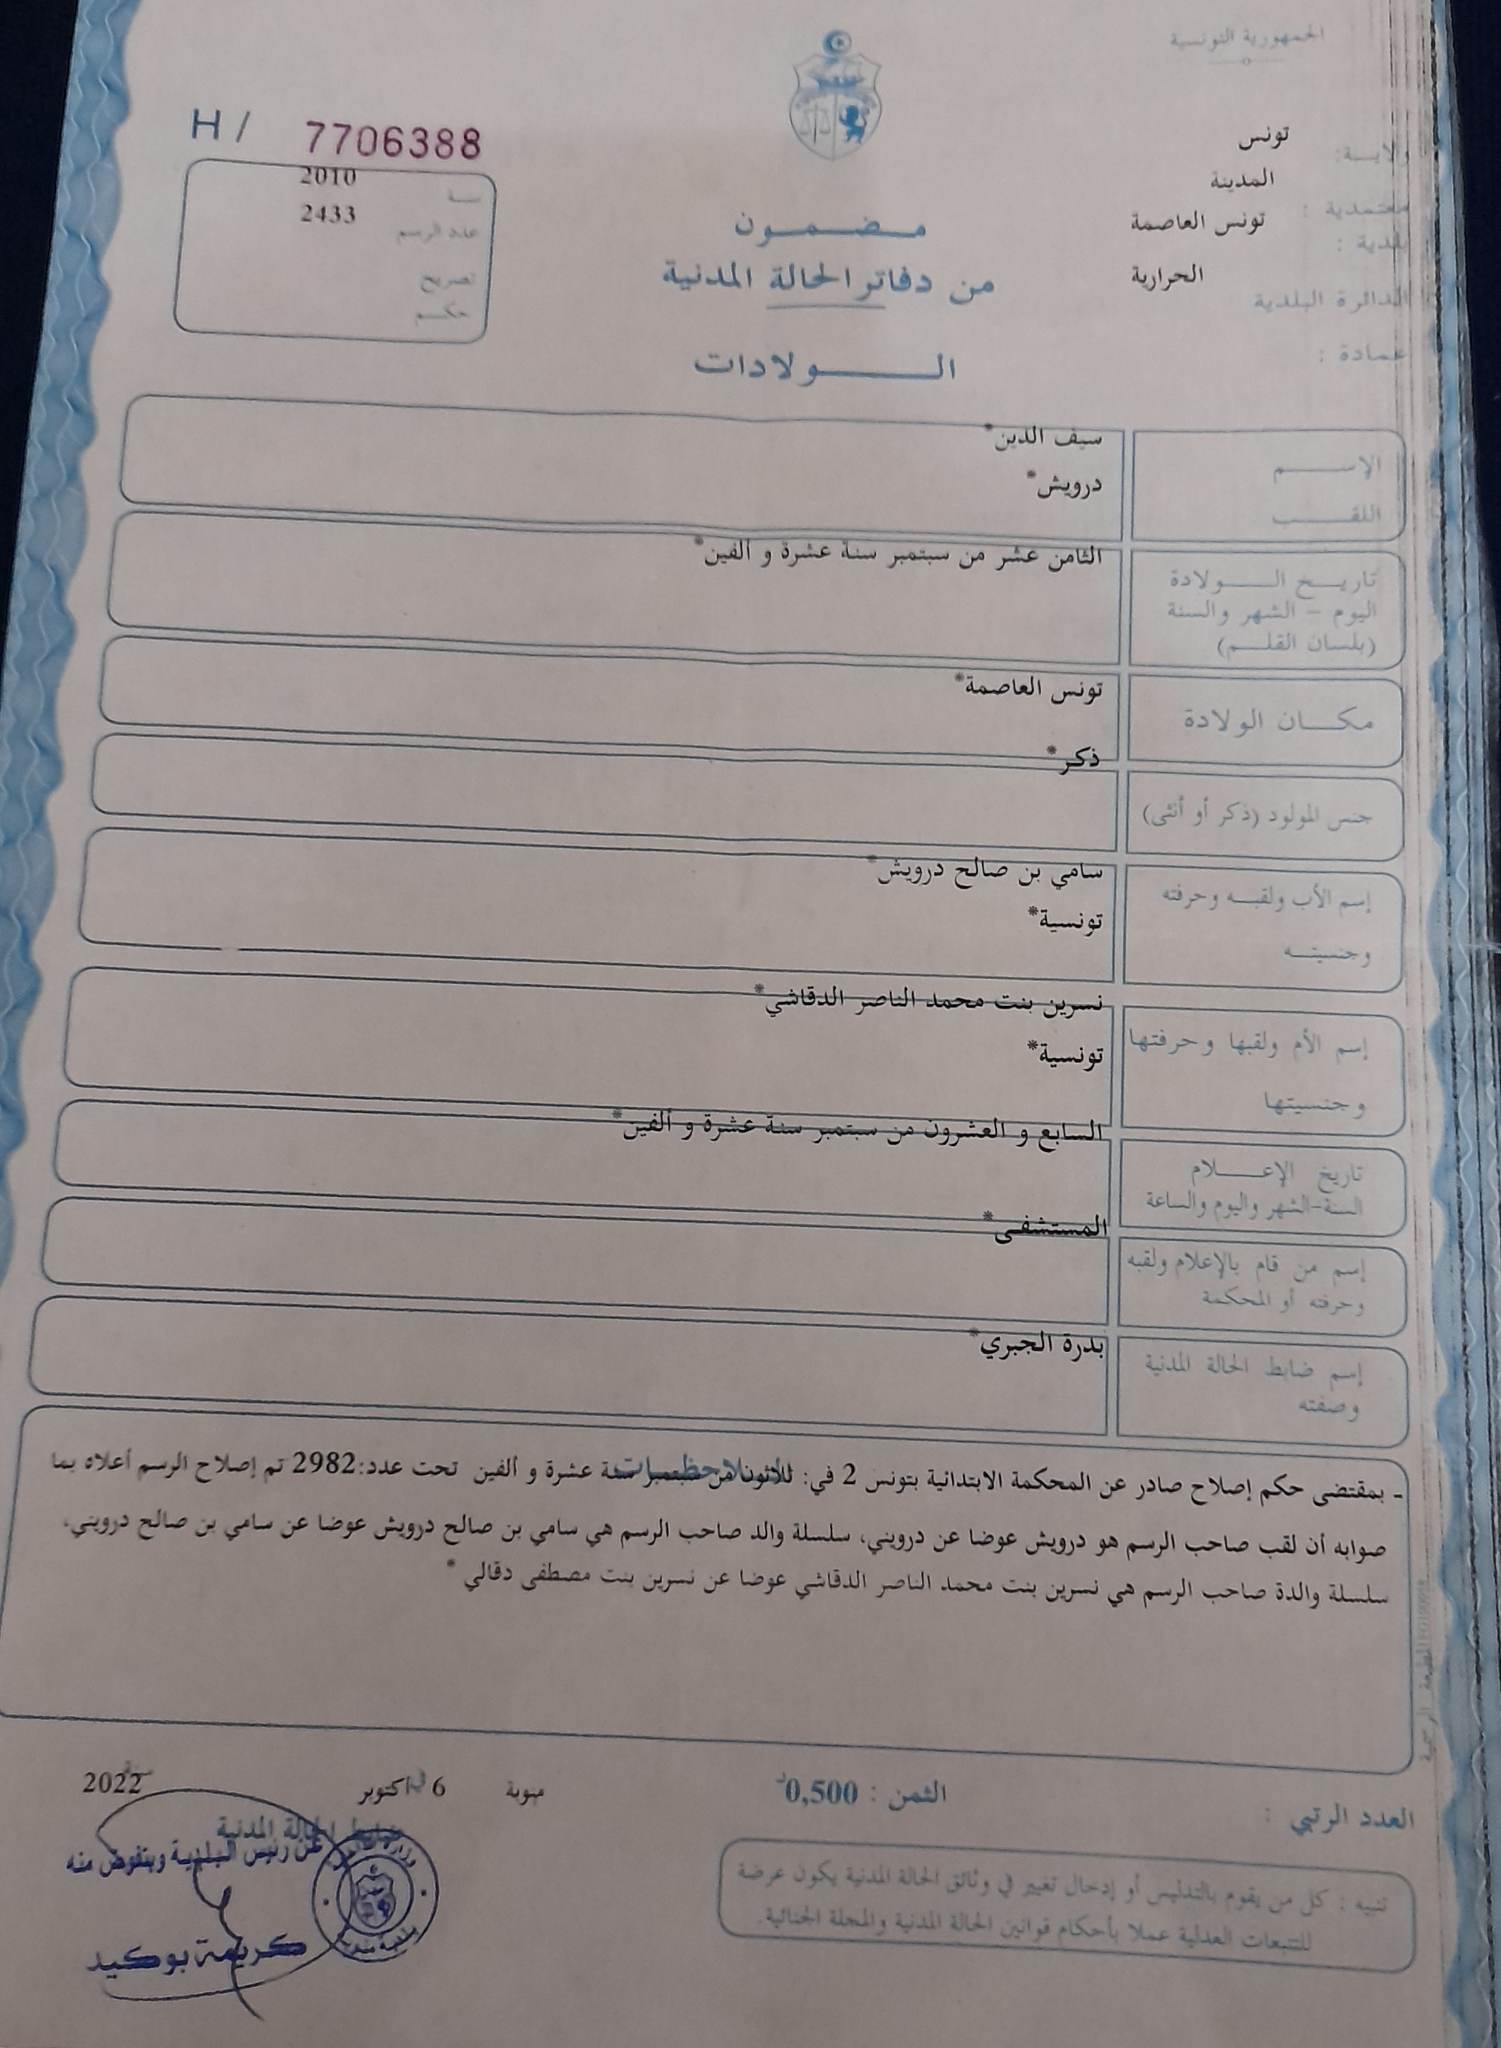 الجمهورية التونسية
H / 7706388
ولايــة: تونس
معتمدية : المدينة
بلدية : تونس العاصمة
الدائرة البلدية الحرارية
عمادة :
سنة 2010
عدد الرسم 2433
تصريح
حكم
مضمون
من دفاتر الحالة المدنية
الولادات
الإسم سيف الدين*
اللقب درويش*
تاريخ الولادة الثامن عشر من سبتمبر سنة عشرة و ألفين*
اليوم - الشهر والسنة
(بلسان القلم)
مكان الولادة تونس العاصمة*
جنس المولود (ذكر أو أنثى) ذكر*
إسم الأب ولقبه وحرفته سامي بن صالح درويش*
وجنسيته تونسية*
إسم الأم ولقبها وحرفتها نسرين بنت محمد الناصر الدقاشي*
وجنسيتها تونسية*
تاريخ الإعلام السابع و العشرون من سبتمبر سنة عشرة و ألفين*
السنة-الشهر واليوم والساعة
إسم من قام بالإعلام ولقبه المستشفى*
وحرفته أو المحكمة
إسم ضابط الحالة المدنية بدرة الجبري*
وصفته
ـ بمقتضى حكم إصلاح صادر عن المحكمة الابتدائية بتونس 2 في: ثلاثون من سبتمبر سنة عشرة و ألفين تحت عدد:2982 تم إصلاح الرسم أعلاه بما
صوابه أن لقب صاحب الرسم هو درويش عوضا عن درويني، سلسلة والد صاحب الرسم هي سامي بن صالح درويش عوضا عن سامي بن صالح درويني،
سلسلة والدة صاحب الرسم هي نسرين بنت محمد الناصر الدقاشي عوضا عن نسرين بنت مصطفى دقالي *
العدد الرتبي :
الثمن : 0,500د
منوبة في 6 أكتوبر سنة 2022
ضابط الحالة المدنية
عن رئيس البلدية وبتفويض منه
كريمة بوكيد
تنبيه : كل من يقوم بالتدليس أو إدخال تغيير في وثائق الحالة المدنية يكون عرضة
للتتبعات العدلية عملا بأحكام قوانين الحالة المدنية والمجلة الجنائية.